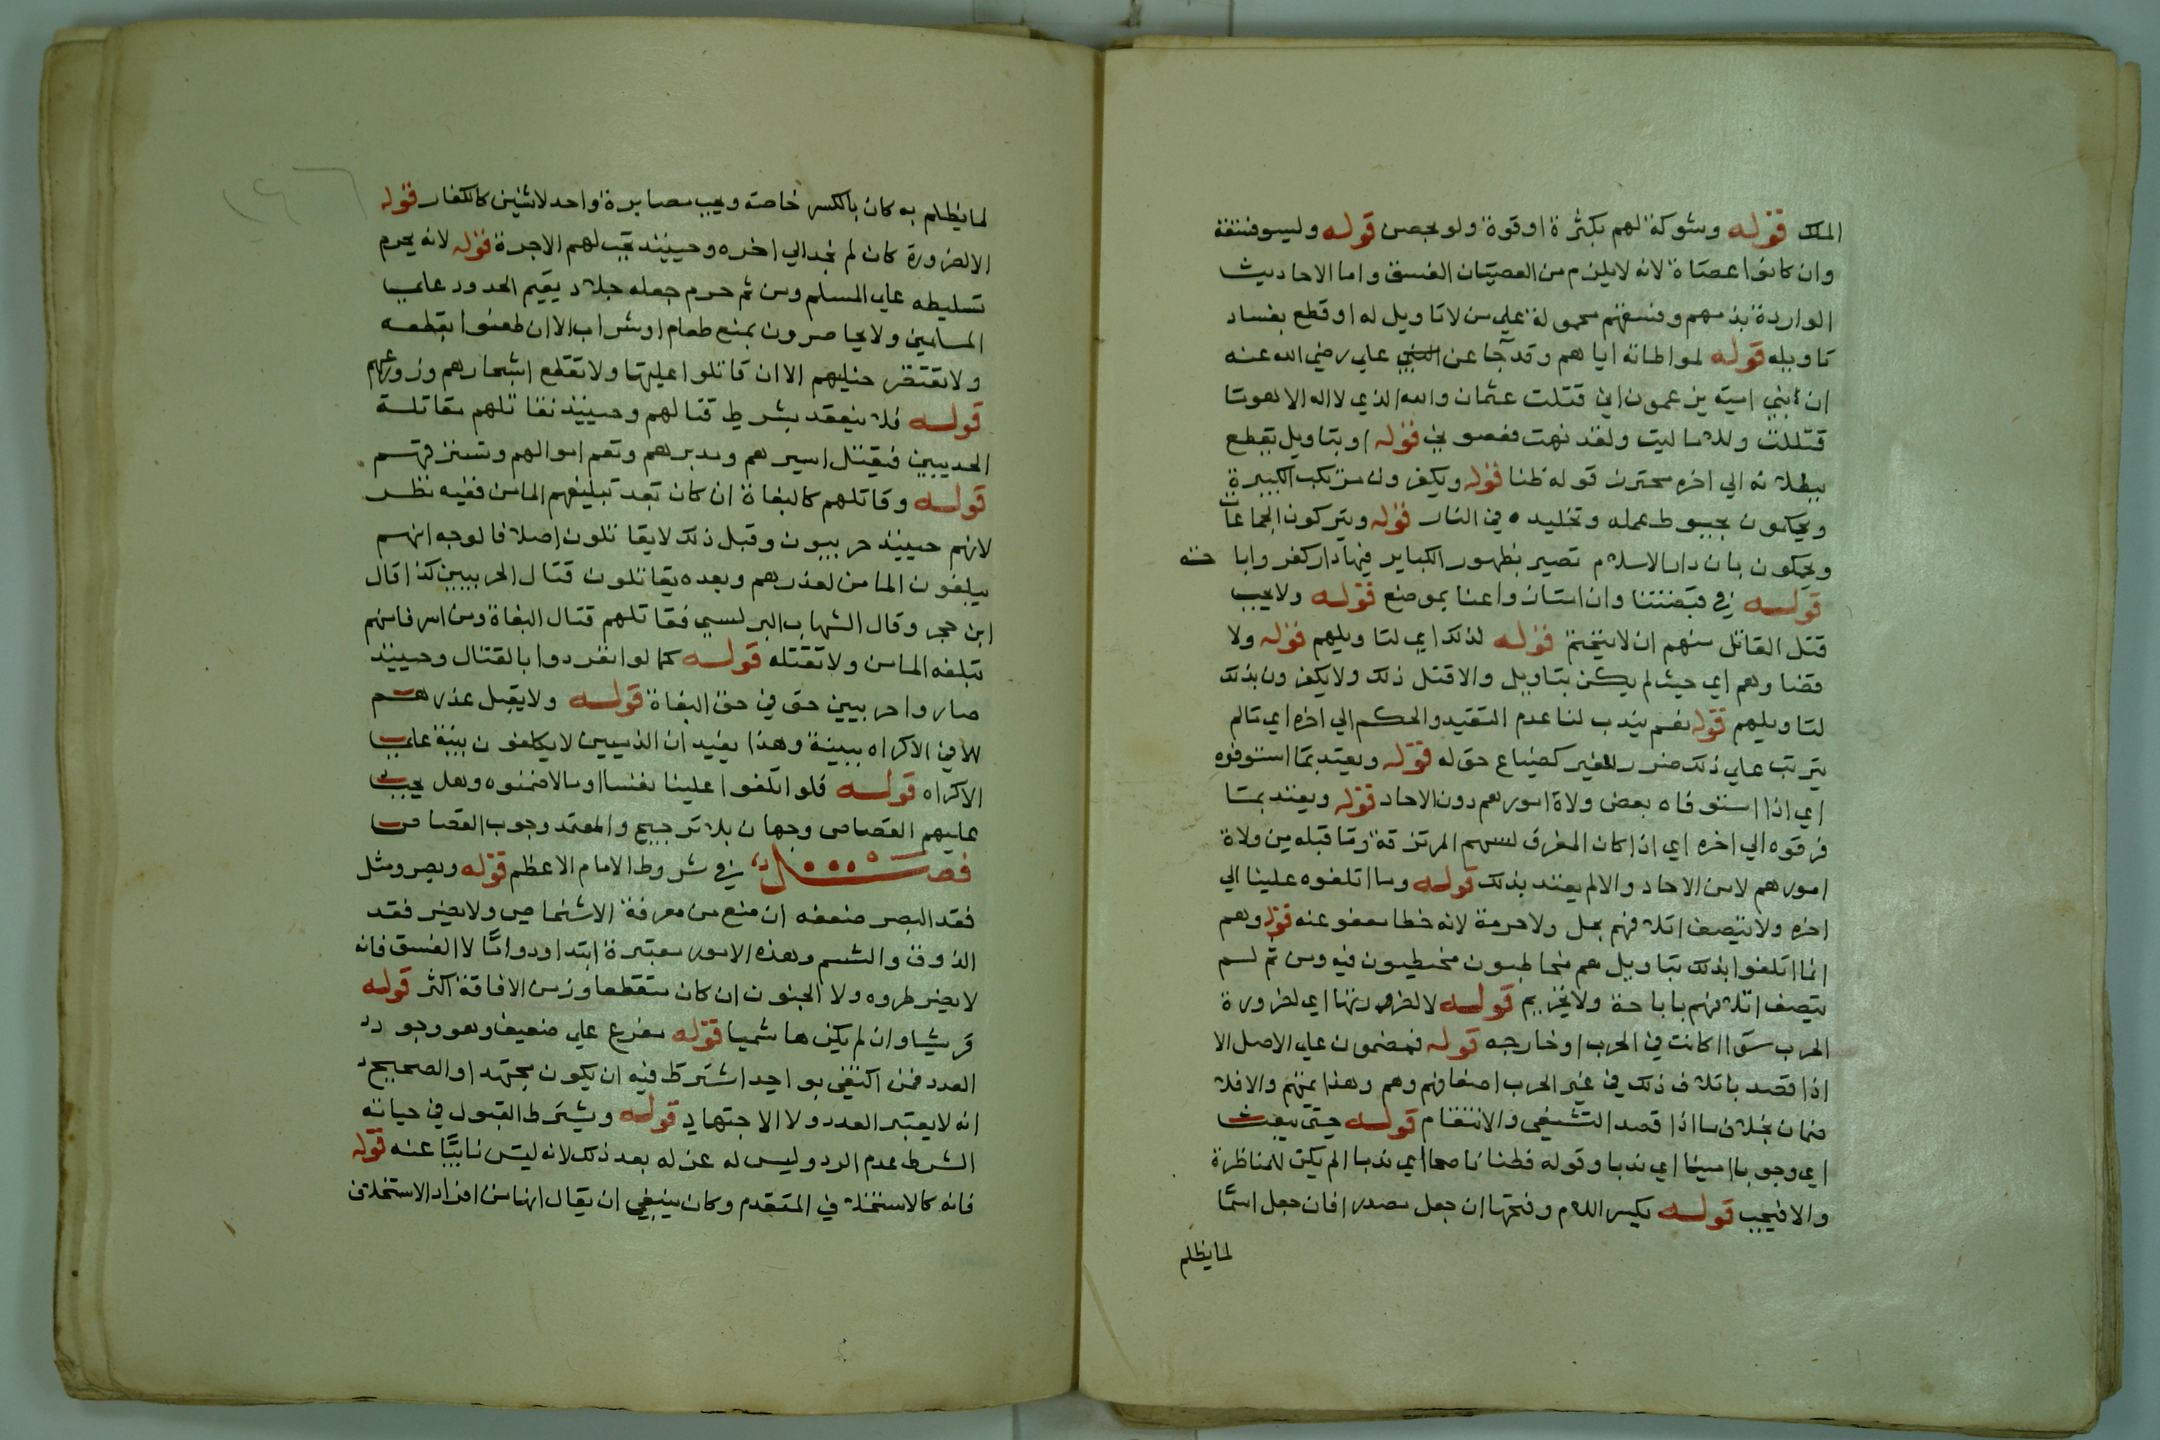 الملك قوله وشوكة لهم بكثرة او قوة ولو بحصن قوله وليسو فسقة
وان كانوا عصاة لانه لا يلزم من العصيان الفسق واما الاحاديث
الواردة بذمهم وفسقهم محمولة علي من لا تاويل له او قطع بفساد
تاويله قوله لمواطاته اياهم وقد جا عن علي رضي الله عنه
ان بني امية يزعمون اني قتلت عثمان والله الذي لا اله الا هو ما
قتلت ولا ماليت ولقد نهت فعصوني قوله او بتاويل يقطع
ببطلانه الي اخره محترز قوله ظنا قوله ويكفرون مرتكب الكبيرة
ويحكمون بحبوط عمله وتخليده في النار قوله ويتركون الجماعات
ويحكمون بان دار الاسلام تصير بظهور الكباير فيها دار كفر واباحته
قوله في قبضتنا وان امتاز واعنا بموضع قوله ولا يجب
قتل القاتل منهم ان لا يتحتم قوله لذلك اي لتاويلهم قوله ولا
قضاوهم اي حيث لم يكن بتاويل والا قتل ذلك ولا يكفرون بذلك
لتاويلهم قوله نعم يندب لنا عدم التقيد والحكم الي اخره اي مالم
يترتب علي ذلك ضرر للغير كضياع حق له قوله ويعتد بما استوفوه
اي اذا استوفاه بعض ولاة امورهم دون الاحاد قوله ويعتد بما
فرقوه الي اخره اي اذا كان المفرق لسهم المرتزقة وما قبله من ولاة
امورهم لا من الاحاد والا لم يعتد بذلك قوله وما اتلفوه علينا الي
اخره ولا يتصف اتلافهم بحل ولا حرمة لانه خطا معفو عنه قوله وهم
انما اتلفوا بذلك بتاويل هم مخاطبون مخطيون فيه ومن ثم لم
يتصف اتلافهم باباحة ولا تحريم قوله لا لضرورتها اي لضرورة
الحرب سوا اكانت في الحرب او خارجه قوله فمضمون علي الاصل الا
اذا قصد باتلاف ذلك في غير الحرب اضعافهم وهم وهذا يمنهم والا فلا
ضمان بخلاف ما اذا قصد التشفي والانتقام قوله حتي يبعث
اي وجوبا امينا اي ندبا وقوله فطنا ناصحا اي ندبا الم يكن للمناظرة
والا فيجب قوله بكسر اللام وفتحها ان جعل مصدرا فان جعل اسما
لما يظلم
لما يظلم به كان بالكسر خاصة ويجب مصابرة واحد لاثنين كالكفار قوله
الا لضرورة كان لم نجد الي اخره وحينيذ تجب لهم الاجرة قوله لانه يحرم
تسليطه علي المسلم ومن ثم حرم جعله جلاد يقيم الحدود علي
المسلمين ولا يحاصرون بمنع طعام او شراب الا ان طمعوا بقطعه
ولا تعقر خيلهم الا ان قاتلوا عليها ولا تقطع اشجارهم وزروعهم
قوله فلا ينعقد بشرط قتالهم وحينيذ نقاتلهم مقاتلة
الحربيين فيقتل اسيرهم ومدبرهم وتغنم اموالهم وتسترقهم
قوله وقاتلهم كالبغاة ان كان بعد تبليغهم المامن ففيه نظر
لانهم حينيذ حربيون وقبل ذلك لا يقاتلون اصلا فالوجه انهم
يبلغون المامن لعذرهم وبعده يقاتلون قتال الحربيين كذا قال
ابن حجر وقال الشهاب البرلسي فقاتلهم قتال البغاة ومن اسر فامنهم
تبلغه المامن ولا تقتله قوله كما لو انفردوا بالقتال وحينيذ
صاروا حربيين حق في حق البغاة قوله ولا يقبل عذرهم
الا في الاكراه ببينة وهذا يفيد ان الذميين لا يكلفون بينة علي
الاكراه قوله فلو اتلفوا علينا نفسا او مالا ضمنوه وهل يجب
عليهم القصاص وجهان بلا ترجيح والمعتمد وجوب القصاص
فصل في شروط الامام الاعظم قوله وبصر ومثل
فقد البصر ضعفه ان منع من معرفة الاشخاص ولا يضر فقد
الذوق والشم وهذه الامور معتبرة ابتدا ودواما لا الفسق فانه
لا يضر طروه ولا الجنون ان كان متقطعا وزمن الافاقة اكثر قوله
قرشيا وان لم يكن هاشميا قوله مفرع علي ضعيف وهو وجود
العدد فمن اكتفي بواحد اشترط فيه ان يكون مجتهدا والصحيح
انه لا يعتبر العدد ولا الاجتهاد قوله ويشترط القبول في حياته
الشرط عدم الرد وليس له عزله بعد ذلك لانه ليس نايبا عنه قوله
فانه كالاستخلاف المتقدم وكان ينبغي ان يقال انها من افراد الاستخلاف